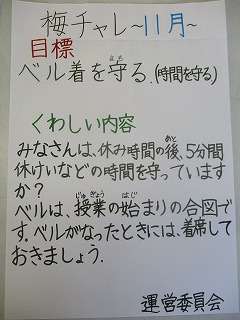 梅チャレ～11月～
目標
ベル着を守る.(時間を守る)
くわしい内容
みなさんは、休み時間の後、5分間
休けいなどの時間を守っています
か？
ベルは、授業の始まりの合図で
す。ベルがなったときには、着席して
おきましょう.
運営委員会